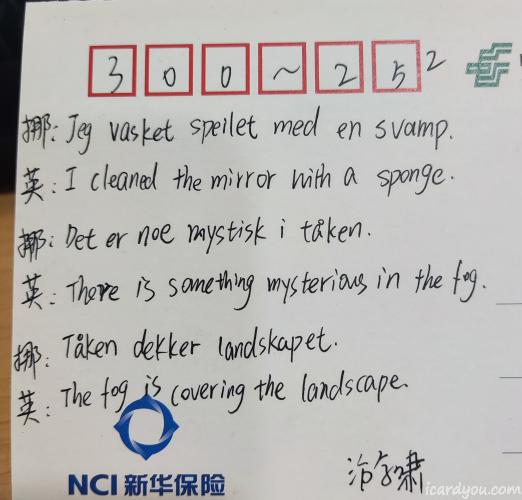 300~25²
挪: Jeg vasket speilet med en svamp.
英: I cleaned the mirror with a sponge.
挪: Det er noe mystisk i tåken.
英: There is something mysterious in the fog.
挪: Tåken dekker landskapet.
英: The fog is covering the landscape.
NCI 新华保险
icardyou.com